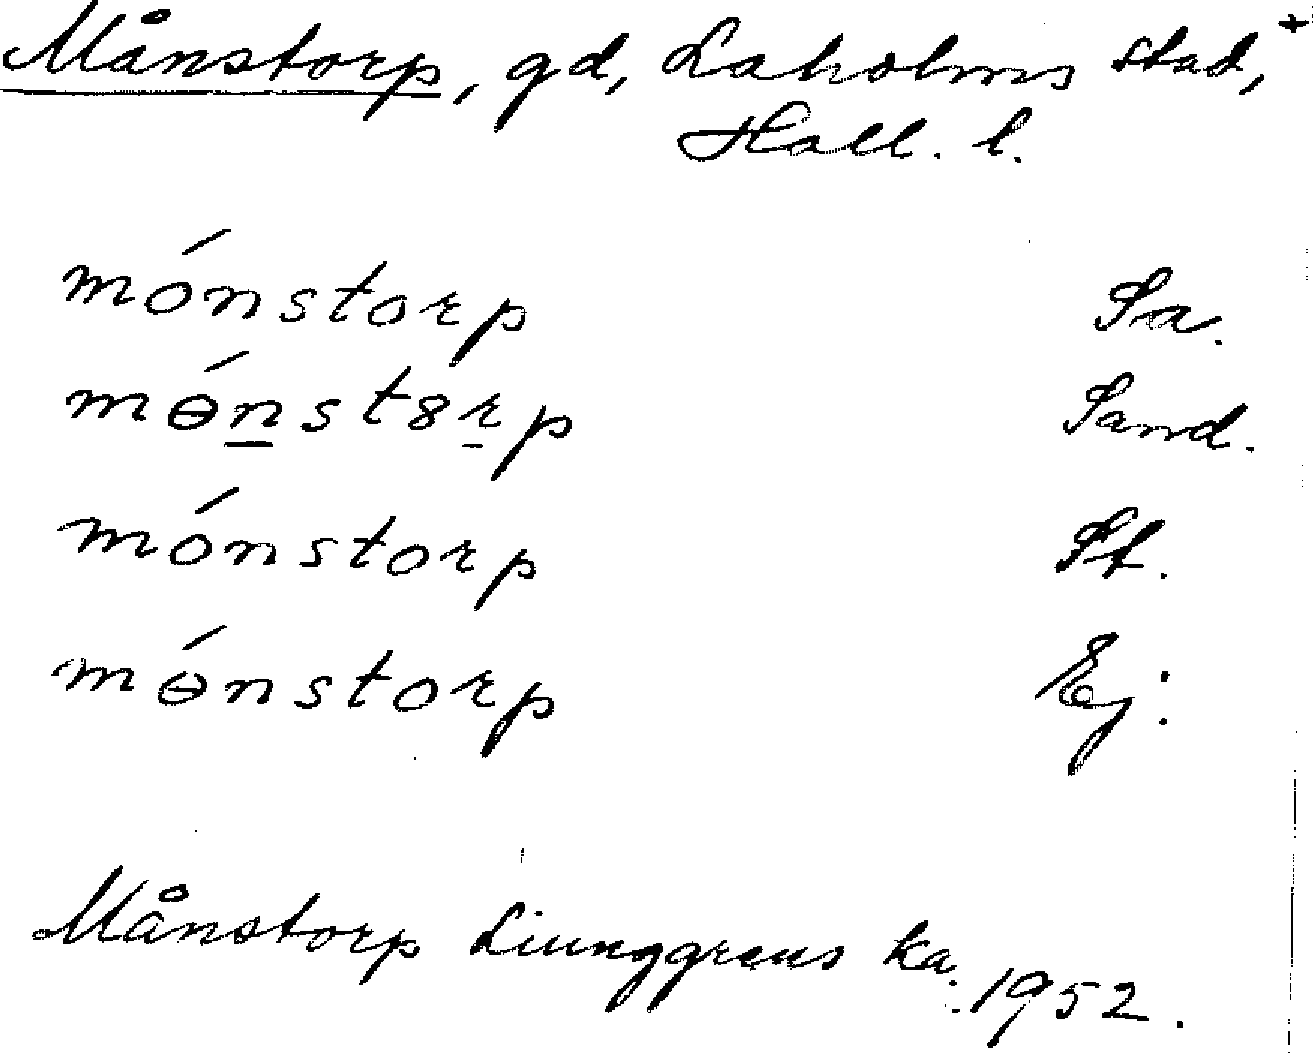 Månstorp, gd, Laholms stad, +
Hall. l.
mónstorp Sa.
mɵ́nst8rp Sand.
mónstorp St.
mɵ́nstorp Ej:
Månstorp Ljunggrens ka. 1952.